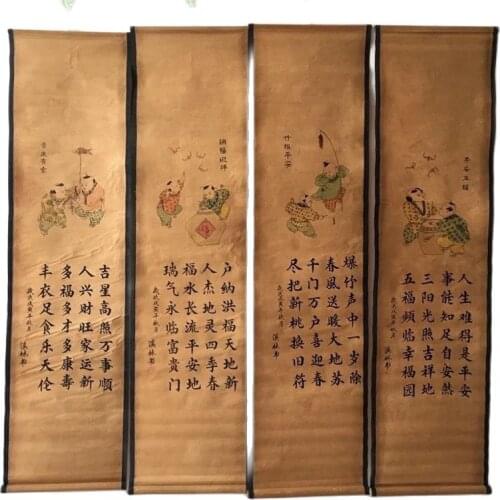 吉星高照万事顺
人兴财旺家运新
多福多才多康寿
丰衣足食乐天伦
纳福迎祥
户纳洪福天地新
人杰地灵四季春
福水长流平安地
瑞气永临富贵门
竹报平安
爆竹声中一岁除
春風送暖大地苏
千门万户喜迎春
尽把新桃换旧符
平安五福
人生难得是平安
事能知足自安然
三阳光照吉祥地
五福频临幸福园